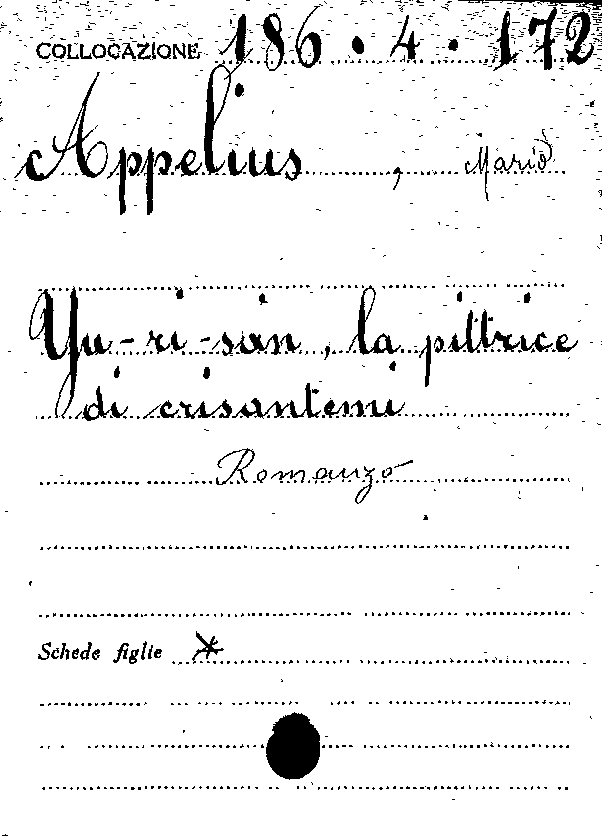 COLLOCAZIONE 186 • 4 • 172
Appelius, Mario
Yu-ri-san, la pittrice
di crisantemi
Romanzo
Schede figlie *